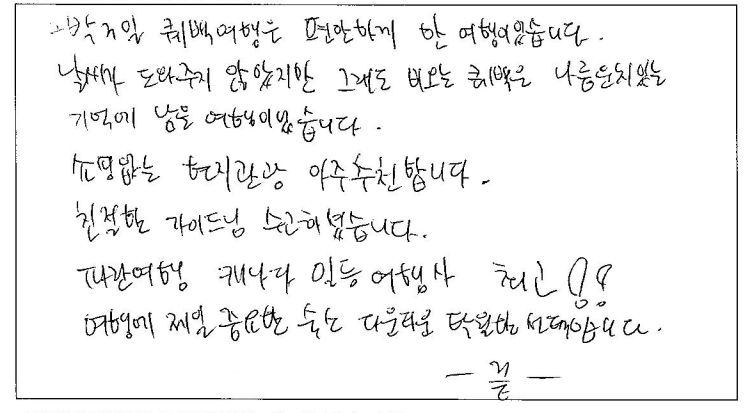 2박3일 퀘백여행은 편안하게 한 여행이었습니다.
날씨가 도와주지 않았지만 그래도 비오는 퀘백은 나름운치있는
기억에 남을 여행이었습니다.
쇼핑없는 현지관광 아주추천합니다.
친절한 가이드님 수고하셨습니다.
파란여행 캐나다 일등여행사 최고!!
여행에 제일 중요한 숙소 다운타운 탁월한 선택이었습니다.
- 끝 -